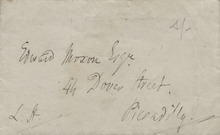 2/-
Edward Moxon Esqr.
44 Dover Street.
L. H. Piccadilly.